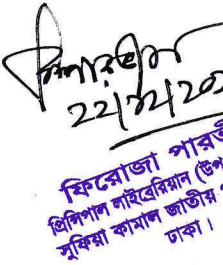 ২২/১২/২০২
ফিরোজা পারভী
প্রিন্সিপাল লাইব্রেরিয়ান (উপ
সুফিয়া কামাল জাতীয়
ঢাকা।